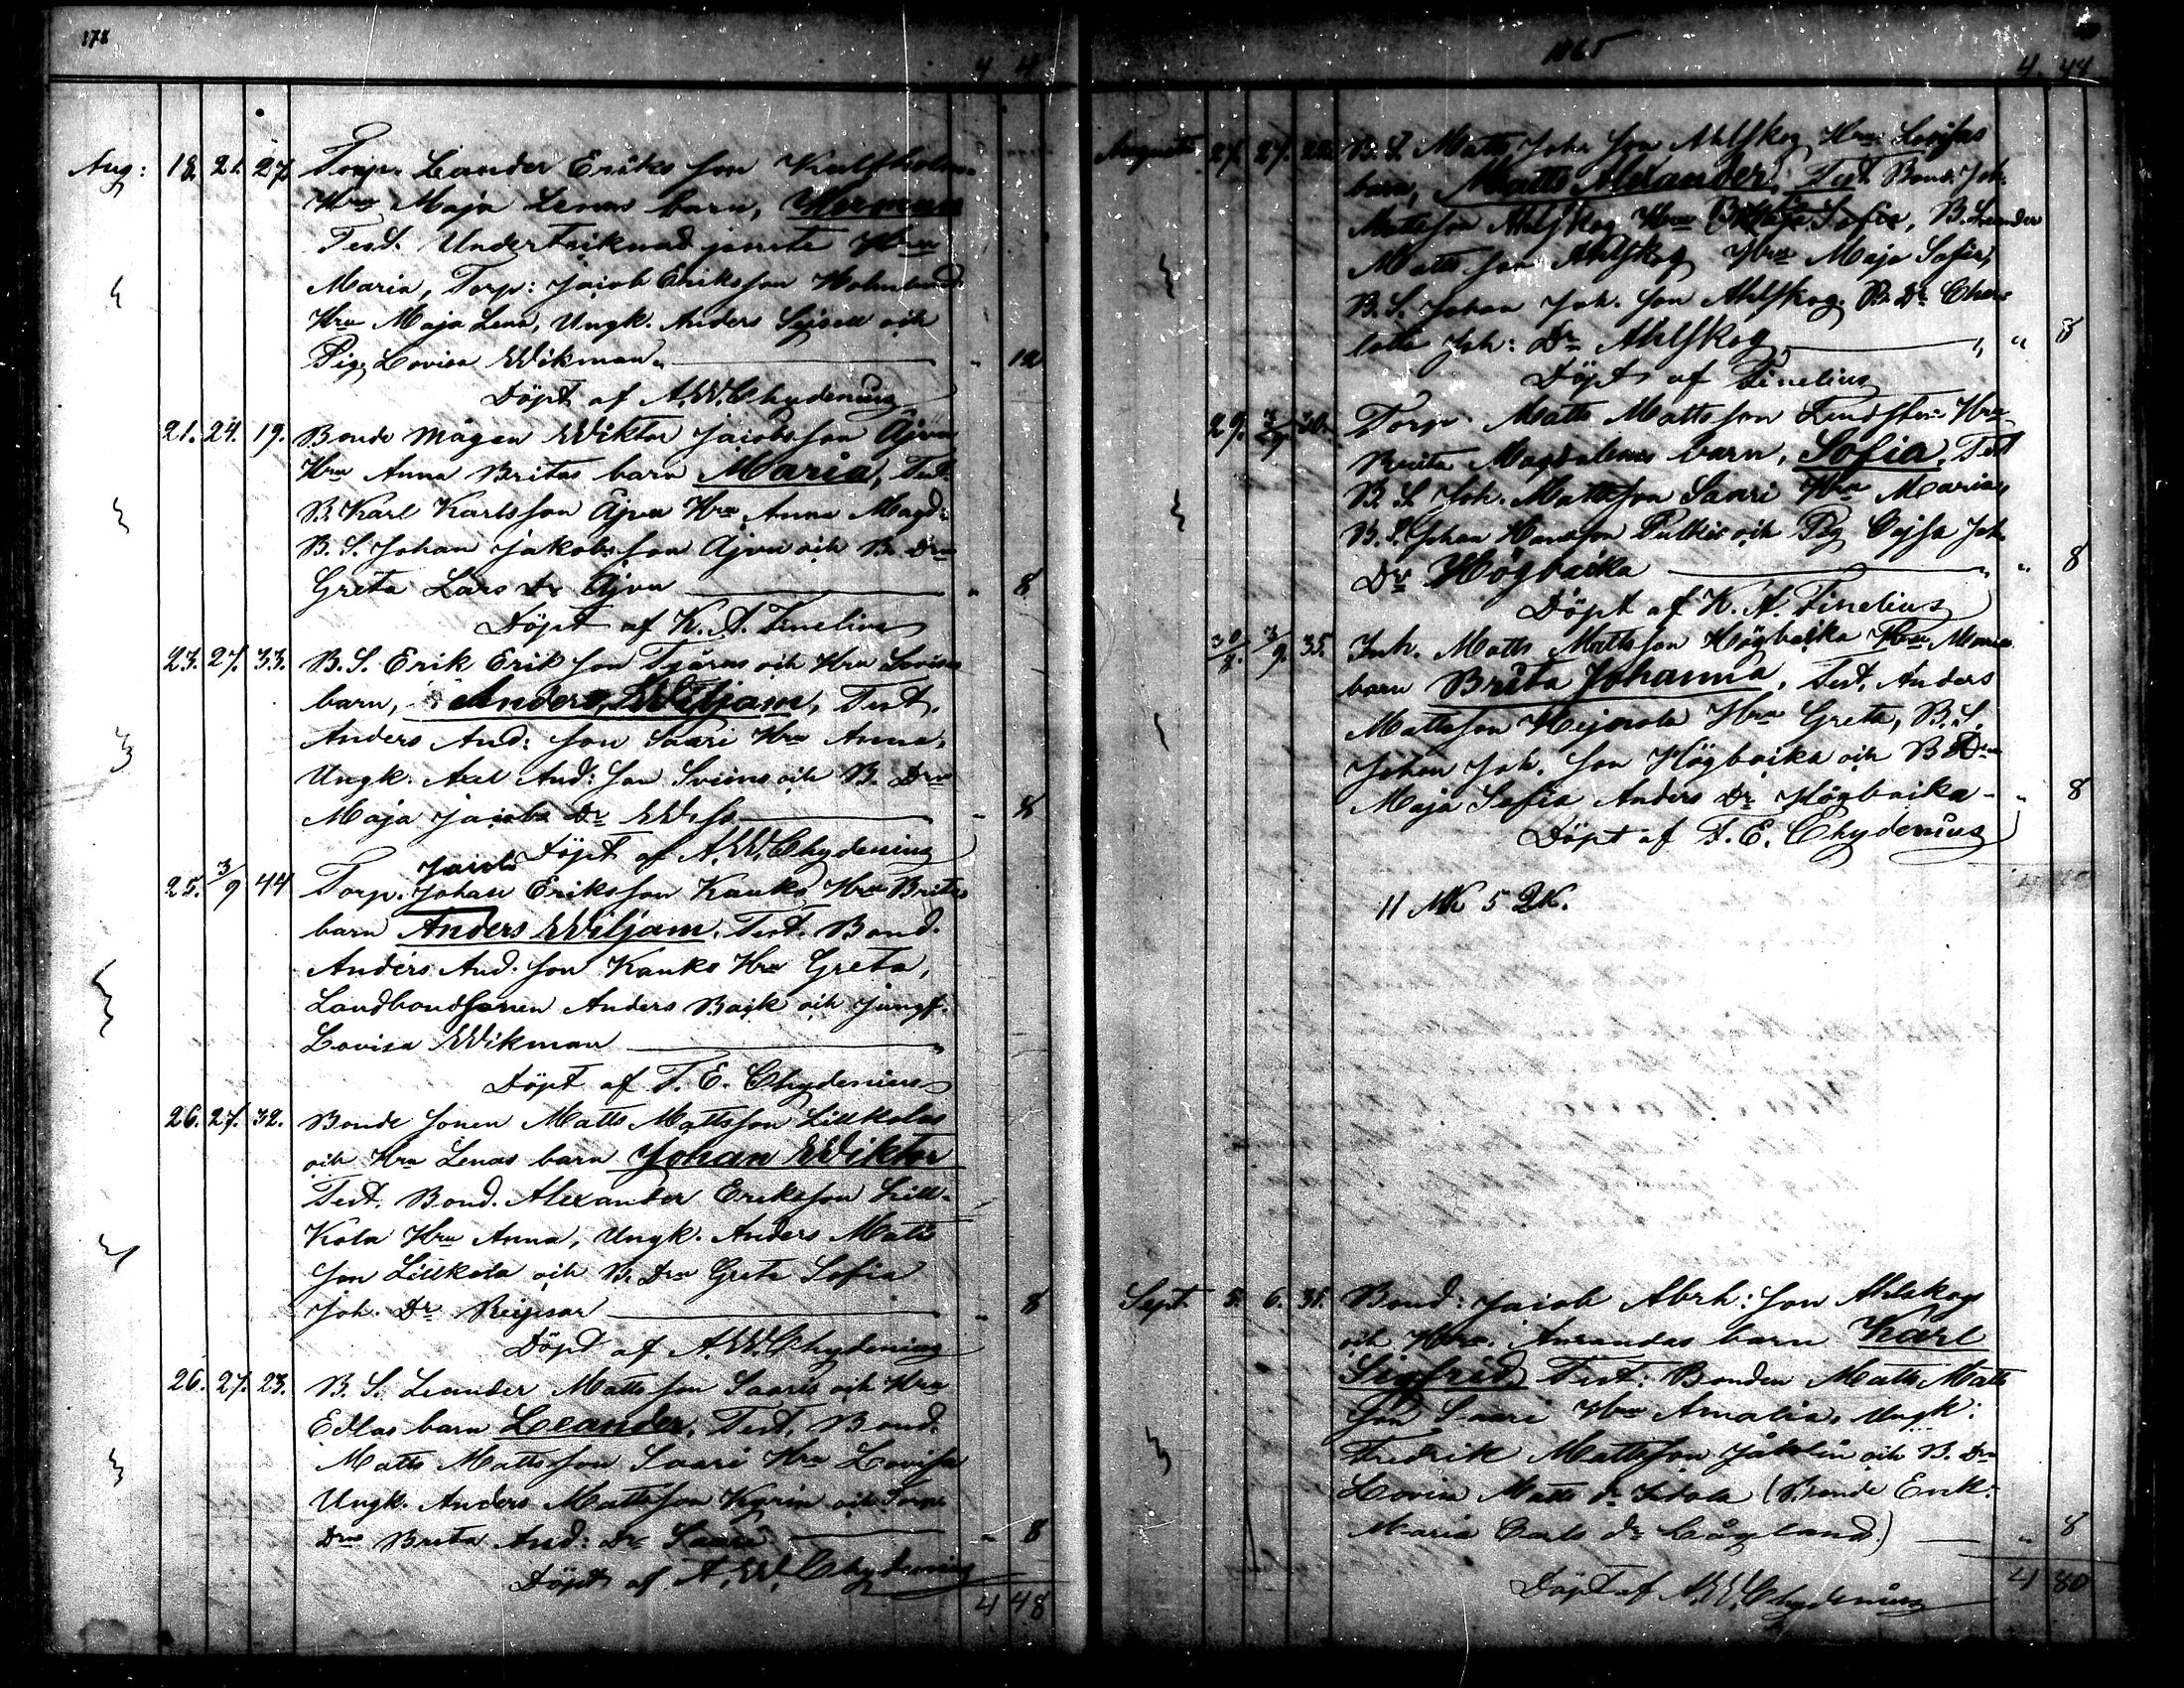 178
4 4
Aug: 18. 21. 27. Torp. Leander Eriks son
Hru Maja Lenas barn, Herman
Test. Undertecknad jemte Hru
Maria, Torp: Jacob Eriksson Holm
Hru Maja Lena, Ungk. Anders och
Pig. Lovisa Wikman. " 12
Döpt af A. W. Chydenius
21. 24. 19. Bonde mågen Wiktor Jacobsson Ajva
Hru Anna Britas barn Maria, Test.
B. Karl Karlsson Ajva Hru Anna Magd:
B. S. Johan Jakobsson Ajva och B. Dr
Greta Lars Dr Ajva " 8
Döpt af K. A. Finelius
23. 27. 33. B. S. Erik Erikson Tjäras och Hru Lovisas
barn, Anders Wiljam, Test.
Anders And: son Saari Hru Anna,
Ungk. Axel And: son Sveins och B. Drn
Maja Jacobs Dr Wess " 8
Döpt af A. W. Chydenius
Jacob
25. 3/9 44 Torp. Johan Eriksson Kauko Hru Britas
barn Anders Wiljam. Test. Bond.
Anders And. son Kauko Hru Greta,
Landbondsonen Anders Backk och Jungf.
Lovisa Wikman
Döpt af T. E. Chydenius
26. 27. 32. Bonde sonen Matts Mattsson Lillkolas
och Hru Lenas barn Johan Wiktor
Test. Bond. Alexander Eriksson Lill-
Kola Hru Anna, Ungk. Anders Matts
son Lillkola och B. Drn Greta Sofia
Joh. Dr " 8
Döpt af A. W. Chydenius
26. 27. 23. B. S. Leander Matts son Saaris och Hru
Edlas barn Leander, Test. Bond.
Matts Mattsson Saari Hru Lovisa
Ungk. Anders Mattsson Kyrin och Torp.
Drn Brita And: Dr Saari " 8
Döpt af A. W. Chydenius
4 48
1865
4. 44
Augusti 27. 27. B. S. Matts Joh. son Ahlskog Hru Lovisas
barn, Matts Alexander, Test. Bond. Joh.
Mattsson Ahlskog Hru Sofia, B. Leander
Matts son Ahlskog Hru Maja Sofia,
B. S. Johan Joh. son Ahlskog. B. Dr Char
lotta Joh: Dr Ahlskog " 8
Döpt af Finelius
29. 3/9. 30. Torp. Matts Mattsson Hru
Brita Magdalenas barn, Sofia, Test
B. S. Joh. Mattsson Saari Hru Maria,
B. S. Johan Hansson Pulkis och Pig Cajsa Joh.
Dr Högbacka " 8
Döpt af K. A. Finelius
30/8. 3/9. 35. Inh. Matts Mattsson Högbacka Hru Marias
barn Brita Johanna, Test. Anders
Mattsson Hru Greta, B. S.
Johan Joh. son Högbacka och B Drn
Maja Sofia Anders Dr Högbacka - " 8
Döpt af T. E. Chydenius
11 MK 5 QK.
Sept. 5. 6. 31. Bond: Jacob Abrh: son Ahlskog
och Hru. Amandas barn Karl
Sigfrid, Test: Bonden Matts Matts
son Saari Hru Amalia, Ungk:
Fredrik Mattsson och B. Dr
Lovisa Matts dr Isdola ( Enk:
Maria Carls dr Cågland.) " 8
Döpt af A. W. Chydenius
4 80